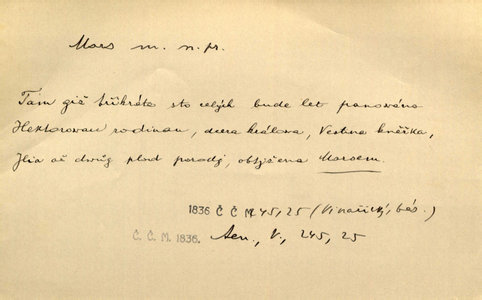 Mars m. n. pr.
Tám giž třikráte sto celých bude let panowáno
Hektorowau rodinau, dcera králowa, Vestina kněžka,
Ilia až dwůg plod porodj, obtjžena Marsem.
1836 Č Č M 45, 25 (Vinařický, bás.)
Č. Č. M. 1836. Aen., V., 245, 25